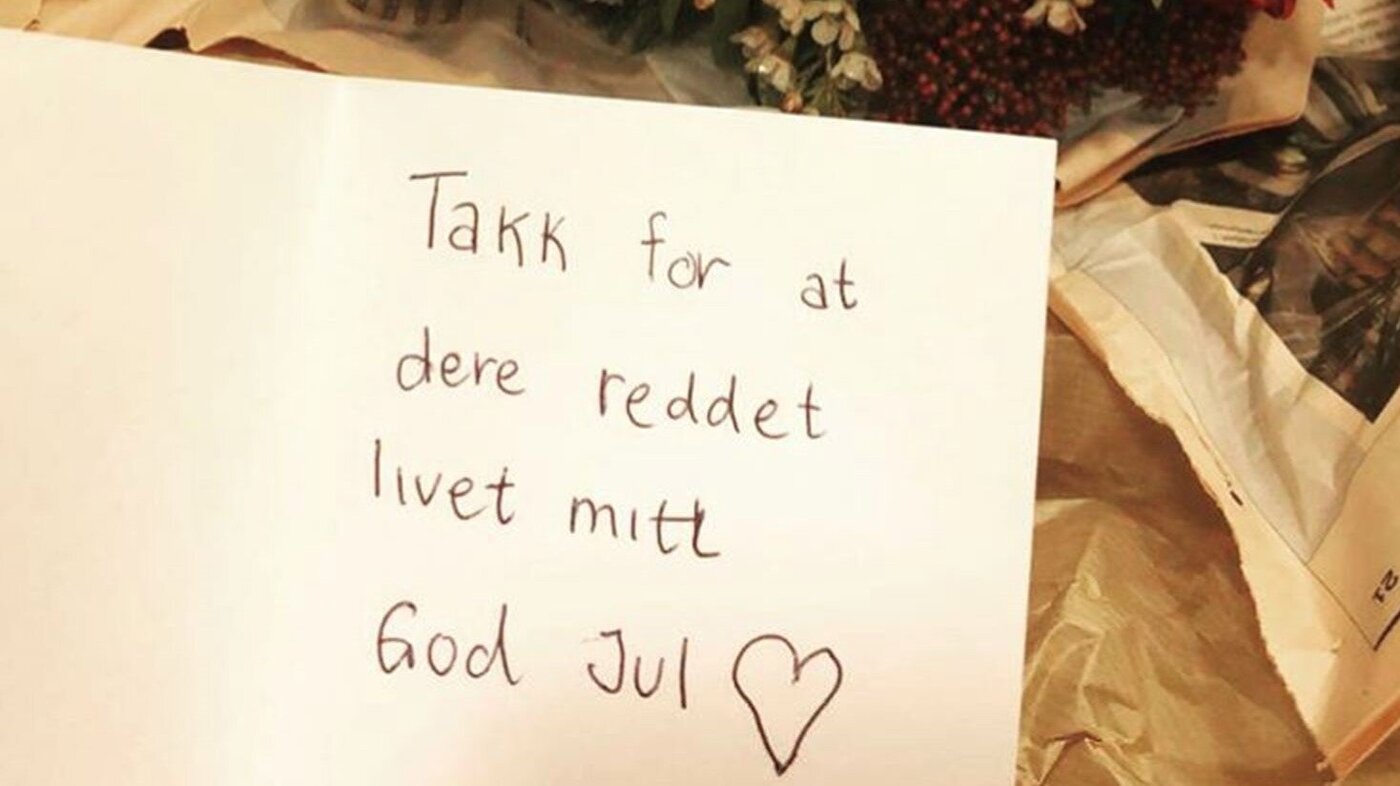 Takk for at
dere reddet
livet mitt
God Jul